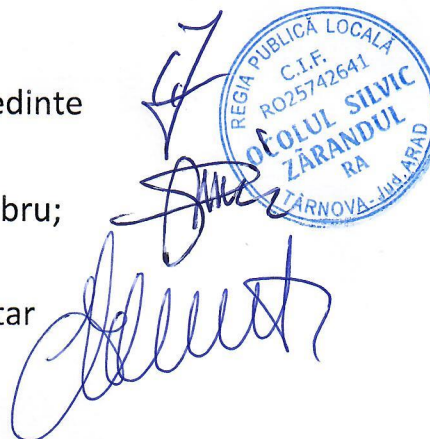 edinte
bru;
tar
REGIA PUBLICĂ LOCALĂ
C.I.F.
RO25742641
OCOLUL SILVIC
ZĂRANDUL
RA
TÂRNOVA-Jud. ARAD